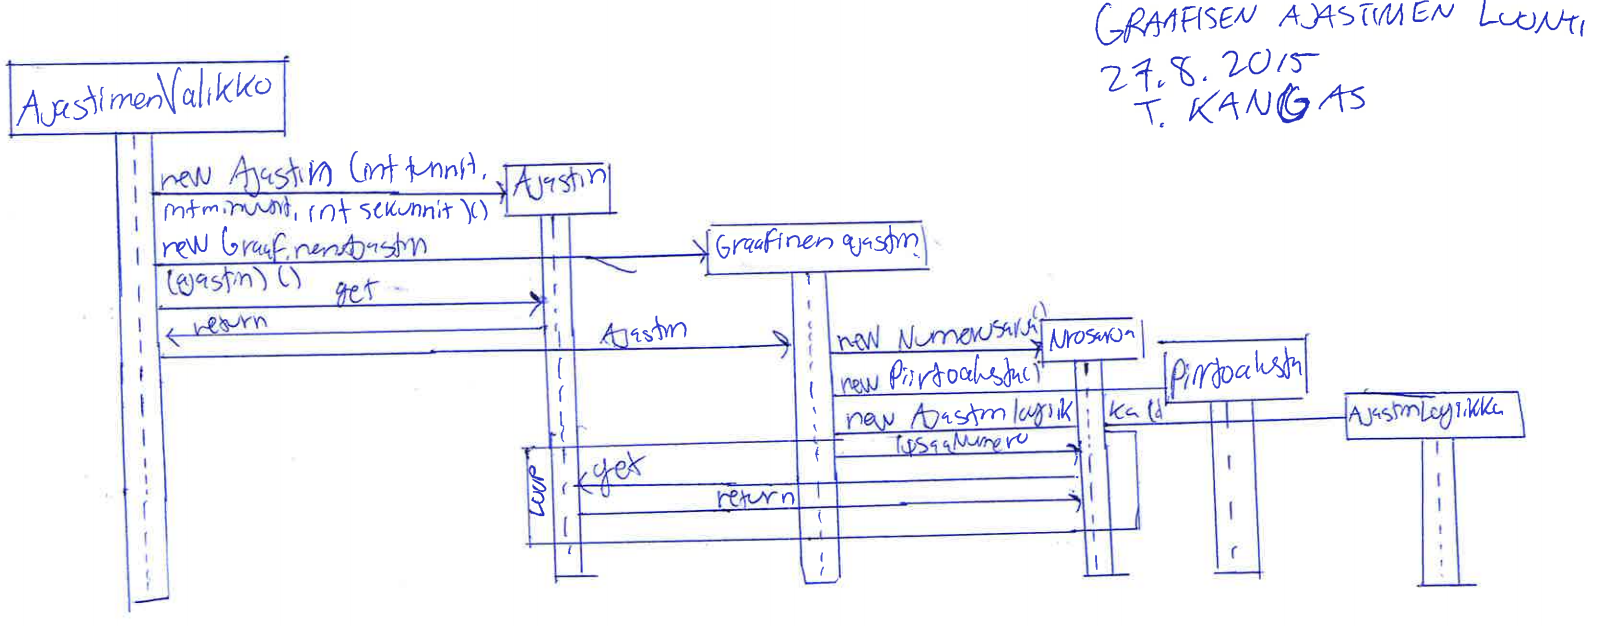 GRAAFISEN AJASTIMEN LUONTI
27.8.2015
T. KANGAS
AjastimenValikko
new Ajastin (int tunnit,
int minuutit, int sekunnit)()
Ajastin
new GraafinenAjastin
(ajastin) ()
Graafinen ajastin
get
return
Ajastin
new Numerosarja()
Nrosarja
new Piirtoalusta()
Piirtoalusta
new Ajastinlogiikka()
AjastinLogiikka
lisaaNumero
LOOP
get
return